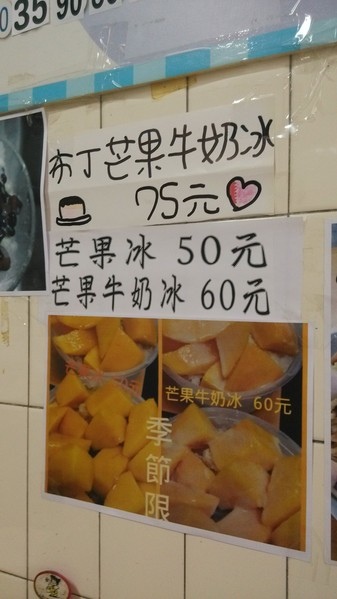 35 90
布丁芒果牛奶冰
75元
芒果冰 50元
芒果牛奶冰 60元
芒果牛奶冰 60元
季節限